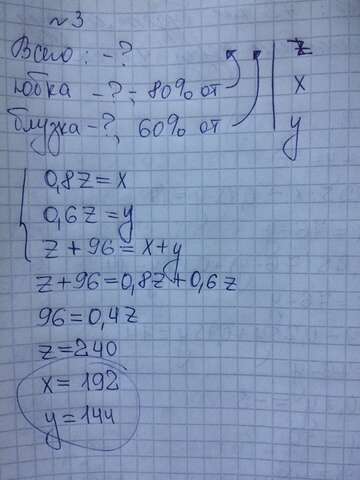 №3
Всего: -? z
юбка -?, 80% от x
блузка -?, 60% от y
0,8z=x
0,6z=y
z+96=x+y
z+96=0,8z+0,6z
96=0,4z
z=240
x=192
y=144